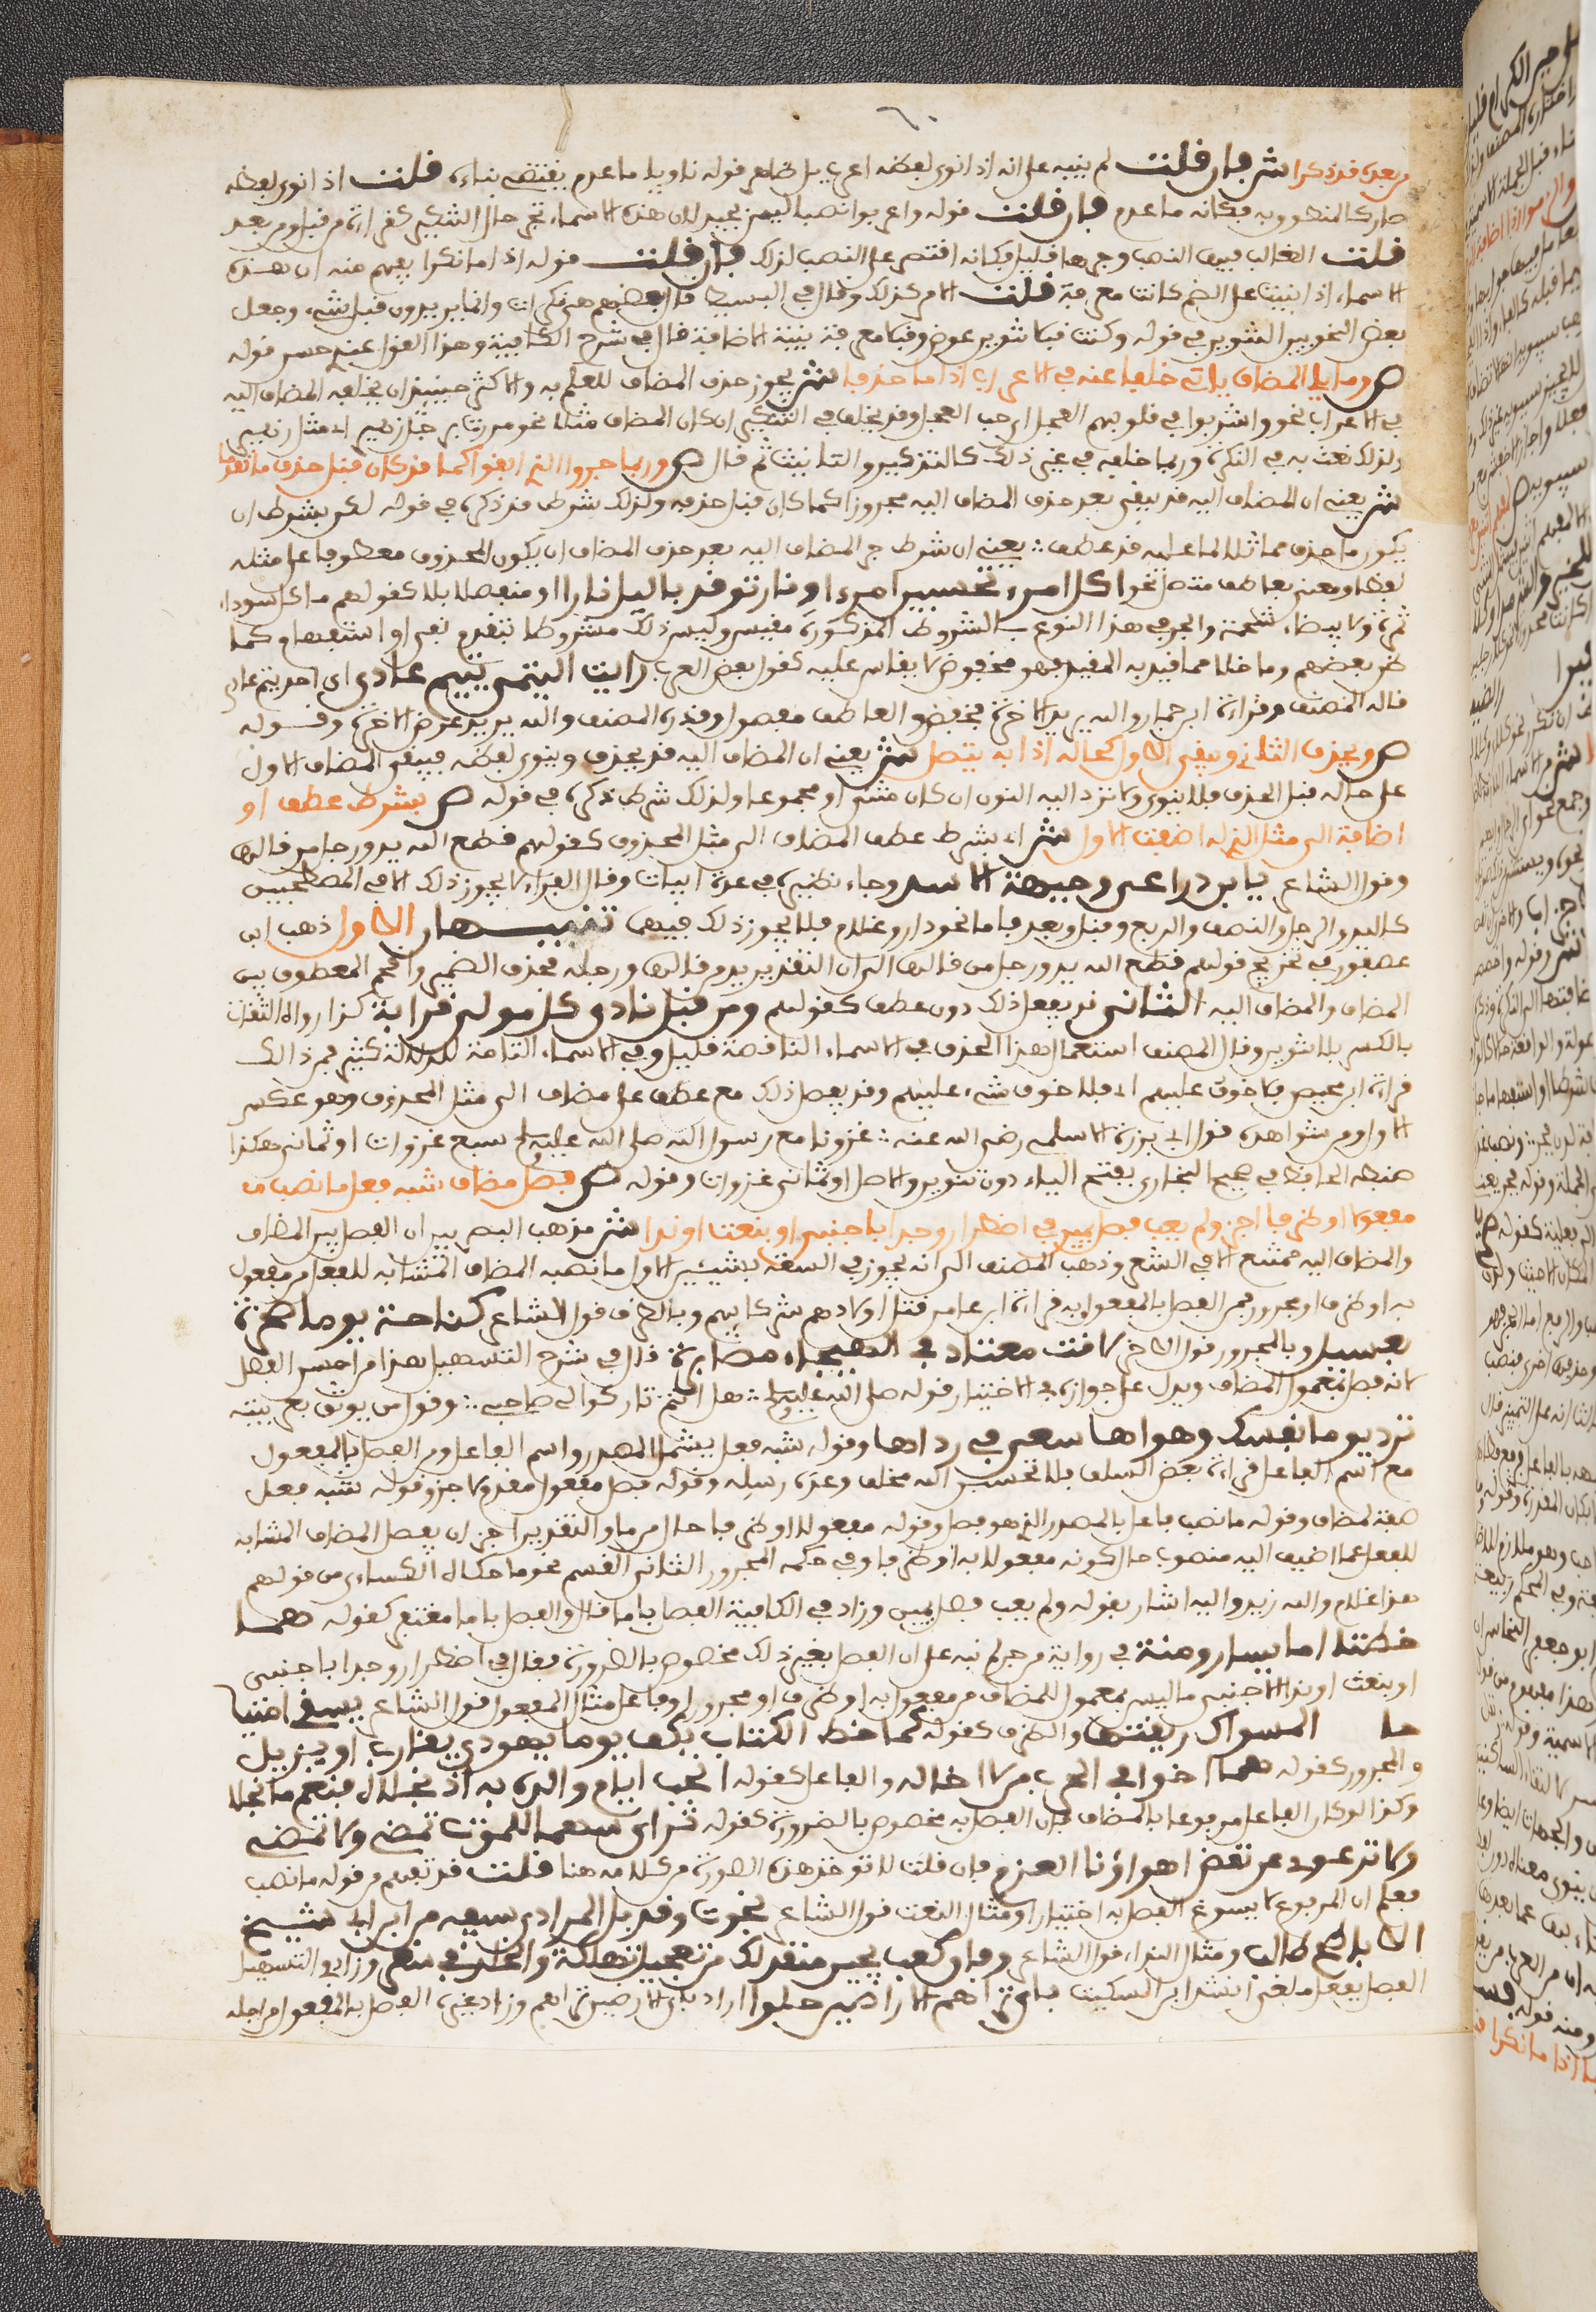 ٦٠
من بعده قد ذكرا ش فان قلت لم ينبه على انه اذا نوى لفظه اعرب بل ظاهر قوله ناويا ما عدم يقتضي بناءه قلت اذا نوى لفظه
صار كالمنطوق به فكانه ما عدم فان قلت قوله واعربوا نصبا ليس بجيد لان هذه الاسماء تجر حال التنكير كقراءة من قبل ومن بعد
قلت الغالب فيها النصب وجرها قليل فكانه اقتصر على النصب لذلك فان قلت قوله اذا ما نكرا يفهم منه ان هذه
الاسماء اذا بنيت على الضم كانت معرفة قلت الامر كذلك وقال في البسيط قال بعضهم هي نكرات وانما يريدون قبل شيء وجعل
بعض النحويين التنوين في قوله وكنت قبلا تنوين عوض وقبلا معرفة بنية الاضافة قال في شرح الكافية وهذا القول عندي حسن قوله
ص وما يلي المضاف ياتي خلفا عنه في الاعراب اذا ما حذفا ش يجوز حذف المضاف للعلم به والاكثر حينئذ ان يخلفه المضاف اليه
في الاعراب نحو واشربوا في قلوبهم العجل اي حب العجل وقد يخلفه في التنكير ان كان المضاف مثلا نحو مررت برجل زهير اي مثل زهير
ولذلك نعت به في النكرة وربما خلفه في غير ذلك كالتذكير والتانيث ثم قال ص وربما جروا الذي ابقوا كما قد كان قبل حذف ما تقدما
ش يعني ان المضاف اليه قد يبقى بعد حذف المضاف اليه مجرورا كما كان قبل حذفه ولذلك شرط قد ذكره في قوله لكن بشرط ان
يكون ما حذف مماثلا لما عليه قد عطف : يعني ان شرط جر المضاف اليه بعد حذف المضاف ان يكون المحذوف معطوفا على مثله
لفظا ومعنى بعاطف متصل نحو اكل امرء تحسبين امرءا ونار توقد بالليل نارا او منفصلا بلا كقولهم ما كل سوداء
ثمرة ولا بيضاء شحمة والجر في هذا النوع بالشروط المذكورة مقيس وليس ذلك مشروطا بتقدم نفي او استفهام كما
ظن بعضهم وما خلا مما قيد به المقيد فهو محفوظ لا يقاس عليه كقول بعض العرب رايت التيمي تيم عدي اي احد تيم عدي
قاله المصنف وقراءة ابن جماز والله يريد الاخرة بخفض والعاطف مفصول وقدره المصنف والله يريد عرض الاخرة وقوله
ص ويحذف الثاني ويبقى الاول كحاله اذا به يتصل ش يعني ان المضاف اليه قد يحذف وينوى لفظه فيبقى المضاف الاول
على حاله قبل الحذف فلا ينون ولا ترد اليه النون ان كان مثنى او مجموعا ولذلك شرط ذكره في قوله ص بشرط عطف او
اضافة الى مثل الذي له اضفت الاول ش اي بشرط عطف المضاف الى مثل المحذوف كقولهم قطع الله يد ورجل من قالها
وقول الشاعر يا بين ذراعي وجبهة الاسد وجاء نظيره في عدة ابيات وقال الفراء لا يجوز ذلك الا في المصطحبين
كاليد والرجل والنصف والربع وقبل وبعد فاما نحو دار وغلام فلا يجوز ذلك فيهما تنبيهان الاول ذهب ابن
عصفور في تخريج قولهم قطع الله يد ورجل من قالها الى ان التقدير يد من قالها ورجله فحذف الضمير واقحم المعطوف بين
المضاف والمضاف اليه الثاني قد يفعل ذلك دون عطف كقولهم ومن قبل نادى كل مولى قرابة كذا رواه الثقات
بالكسر بلا تنوين وقال المصنف استعمال هذا الحذف في الاسماء الناقصة قليل وفي الاسماء التامة للدلالة كثير فمن ذلك
قراءة ابن محيصن فلا خوف عليهم اي فلا خوف شيء عليهم وقد يفعل ذلك مع عطف على مضاف الى مثل المحذوف وهو عكس
الاول ومن شواهده قول ابي برزة الاسلمي رضي الله عنه : غزونا مع رسول الله صلى الله عليه وسلم سبع غزوات او ثماني هكذا
ضبطه الحافظ في صحيح البخاري بفتح الياء دون تنوين والاصل او ثماني غزوات وقوله ص فصل مضاف شبه فعل ما نصب ف
مفعولا او ظرفا اجز ولم يعب فصل يمين في اضطرار وجدا باجنبي او بنعت او ندا ش مذهب البصريين ان الفصل بين المضاف
والمضاف اليه ممتنع الا في الشعر وذهب المصنف الى انه يجوز في السعة بشيئين الاول ما نصبه المضاف المشابه للفعل من مفعول
به او ظرف او مجرور فمن الفصل بالمفعول به قراءة ابن عامر قتل اولادهم شركائهم وبالظرف قول الشاعر كناحت يوما صخرة
بعسيل وبالمجرور قول الاخر لا انت معتاد في الهيجاء مصابرة قال في شرح التسهيل هذا من احسن الفصل
لانه فصل بمعمول المضاف ويدل على جوازه في الاختيار قوله صلى الله عليه وسلم : هل انتم تاركوا لي صاحبي : وقول من يوثق بعربيته
ترك يوما نفسك وهواها سعي في رداها وقوله شبه فعل يشمل المصدر واسم الفاعل ومن الفصل بالمفعول
مع اسم الفاعل قراءة بعض السلف فلا تحسبن الله مخلف وعده رسله وقوله فصل مفعول مقدم لاجز وقوله شبه فعل
صفة لمضاف وقوله ما نصب فاعل بالمصدر الذي هو فصل وقوله مفعولا او ظرفا حال من ما والتقدير اجز ان يفصل المضاف المشابه
للفعل عما اضيف اليه منصوب حال كونه مفعولا به او ظرفا وفي حكمه المجرور الثاني القسم نحو ما حكاه الكسائي من قولهم
هذا غلام والله زيد واليه اشار بقوله ولم يعب فصل يمين وزاد في الكافية الفصل باما قال والفصل باما مغتفر كقوله هما
خطتا اما يسار ومنة في رواية من جر ثم نبه على ان الفصل بغير ذلك مخصوص بالضرورة فقال في اضطرار وجدا باجنبي
او بنعت او ندا الاجنبي ما ليس بمعمول للمضاف من مفعول به او ظرف او مجرور او فاعل مثال المفعول قول الشاعر يسقي امتيا
حا المسواك ريقتها والظرف كقوله كما خط الكتاب بكف يوما يهودي يقارب او يزيل
والمجرور كقوله هما اخوا في الحرب من لا اخا له والفاعل كقوله انجب ايام والداه به اذ نجلاه فنعم ما نجلا
وكذا لو كان الفاعل مرفوعا بالمضاف فان الفصل به مخصوص بالضرورة كقوله ترى اسهما للموت تصمي ولا تنمي
ولا ترعوي عن نقض اهواؤنا العزم فان قلت لا توخذ هذه الصورة من كلامه هنا قلت قد تفهم من قوله ما نصب
فعلم ان المرفوع لا يسوغ الفصل به اختيارا ومثال النعت قول الشاعر نجوت وقد بل المرادي سيفه من ابن ابي شيخ
الاباطح طالب ومثال النداء قول الشاعر وفاق كعب بجير منقذ لك من تعجيل تهلكة والخلد في سقر وزاد في التسهيل
الفصل بفعل ملغى انشد ابن السكيت باي تراهم الارضين حلوا اراد باي الارضين تراهم وزاد غيره الفصل بالمفعول من اجله